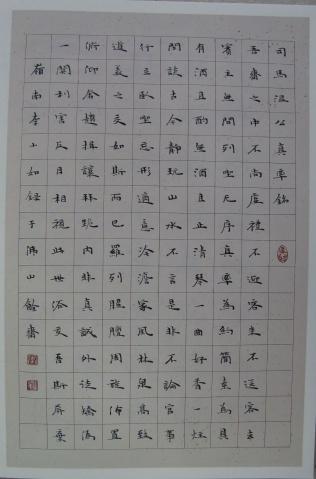 司馬溫公真率銘
吾齋之中不尚虛禮不迎客來不送客去
賓主無間坐列無序真率為約簡素為具
有酒且酌無酒且止清琴一曲好香一炷
閒談古今靜玩山水不言是非不論官事
行立坐臥忘形適意冷澹家風林泉高致
道義之交如斯而已羅列腥膻周旋佈置
俯仰奔趨揖讓拜跪內非真誠外徒矯偽
一關利害反目相視此世俗交吾斯屏棄
嶺南李小如錄于佛山餘齋